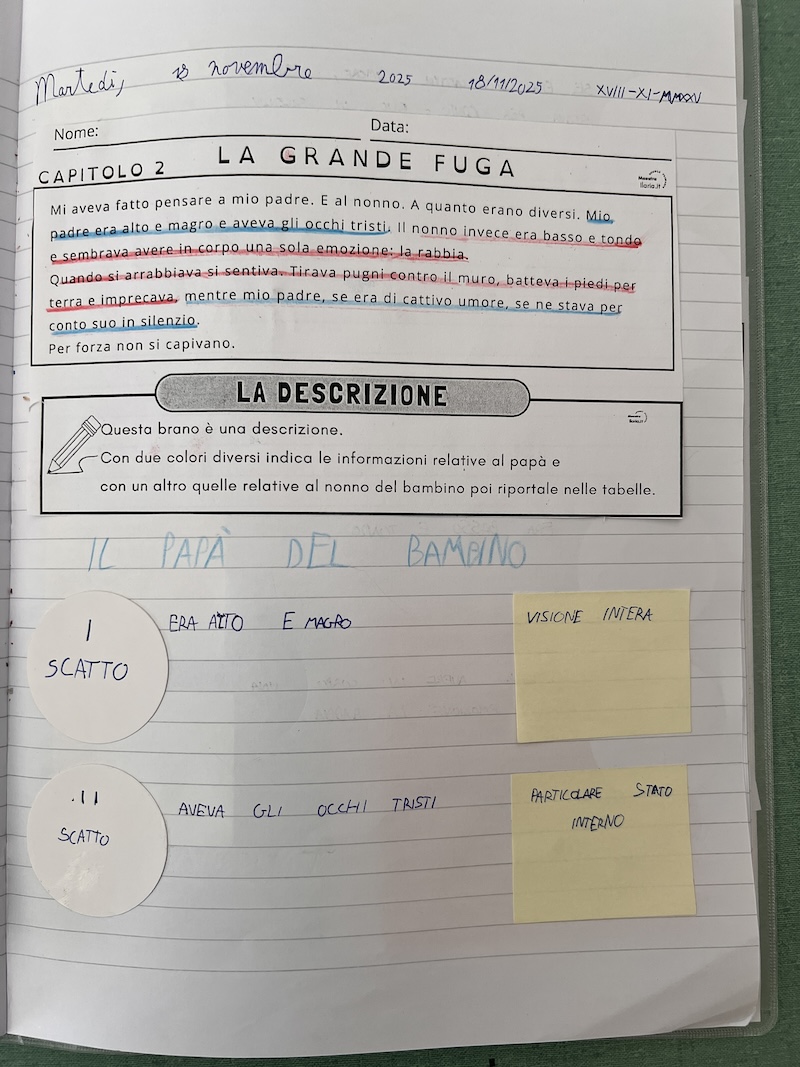 Martedì, 18 novembre 2025 18/11/2025 XVIII-XI-MMXXV
Nome: Data:
CAPITOLO 2 LA GRANDE FUGA
Maestra
Ilaria.it
Mi aveva fatto pensare a mio padre. E al nonno. A quanto erano diversi. Mio
padre era alto e magro e aveva gli occhi tristi. Il nonno invece era basso e tondo
e sembrava avere in corpo una sola emozione: la rabbia.
Quando si arrabbiava si sentiva. Tirava pugni contro il muro, batteva i piedi per
terra e imprecava, mentre mio padre, se era di cattivo umore, se ne stava per
conto suo in silenzio.
Per forza non si capivano.
LA DESCRIZIONE
Maestra
Ilaria.it
Questa brano è una descrizione.
Con due colori diversi indica le informazioni relative al papà e
con un altro quelle relative al nonno del bambino poi riportale nelle tabelle.
IL PAPÀ DEL BAMBINO
I
SCATTO
ERA ALTO E MAGRO
VISIONE INTERA
II
SCATTO
AVEVA GLI OCCHI TRISTI
PARTICOLARE STATO
INTERNO